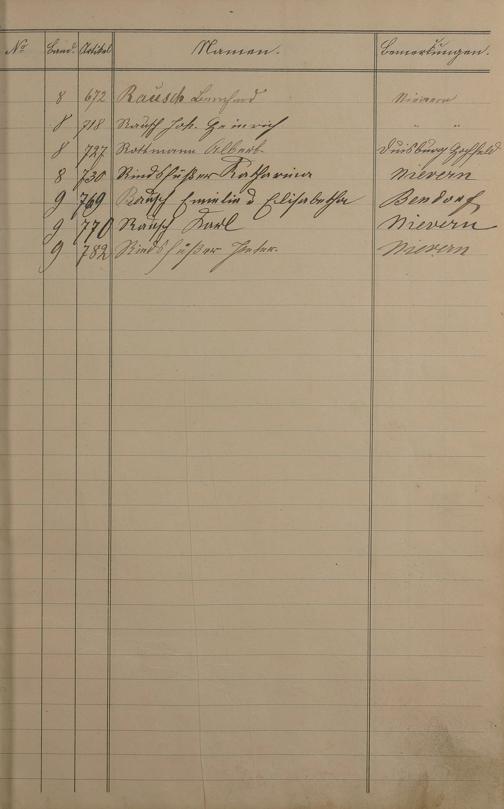 No Band. Artikel Namen. Bemerkungen.
8 672 Rausch Bernhard Nievern
8 718 Rausch Joh. Heinrich " "
8 727 Rottmann Albert Duisburg Hochfeld
8 730 Rindsfüßer Katharina Nievern
9 769 Rausch Emilie u Elisabetha Bendorf
9 770 Rausch Karl Nievern
9 782 Rindsfüßer Peter. Nievern